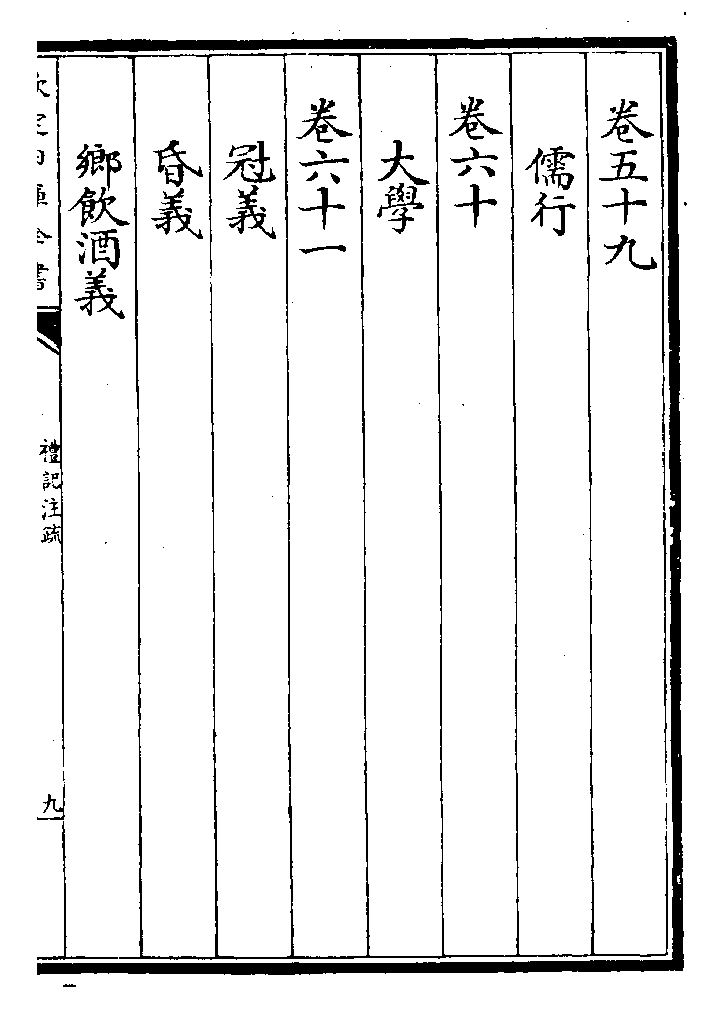 卷五十九
儒行
卷六十
大學
卷六十一
冠義
昏義
鄉飲酒義
欽定四庫全書
禮記注疏
九